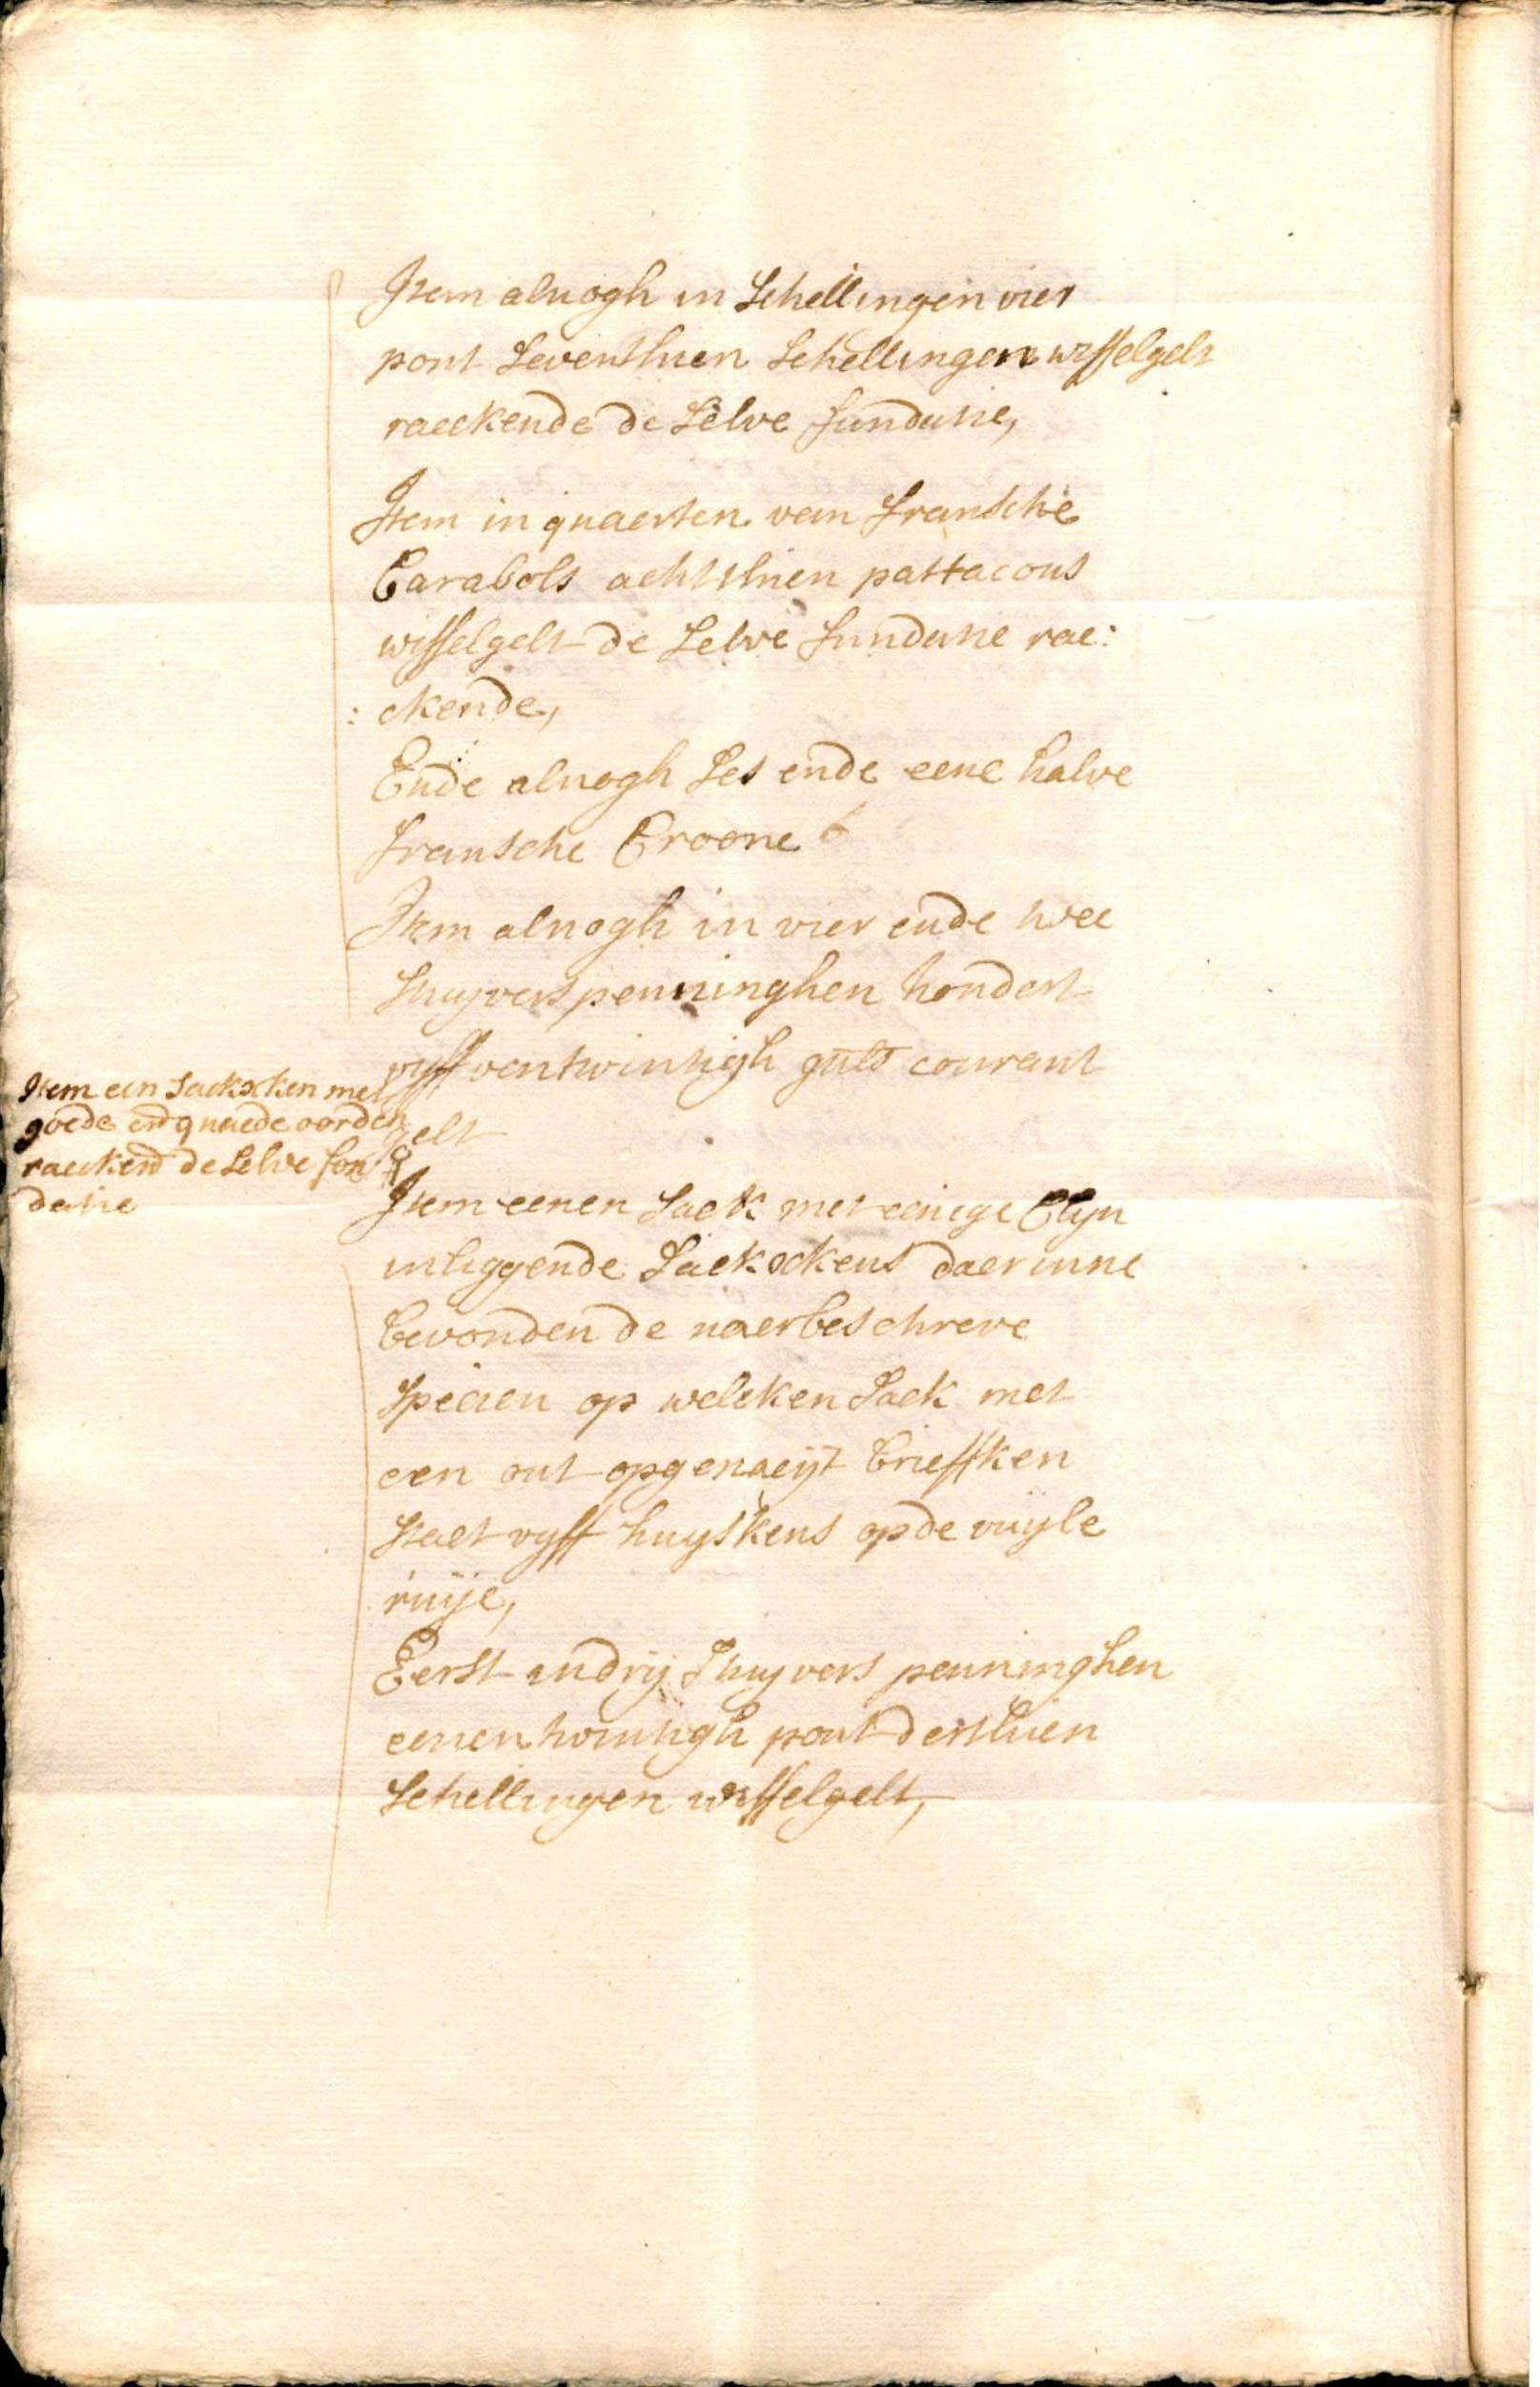 Item alnogh in Schellingen vier
pont Seventhien Schellingen wisselgelt
raeckende de Selve fundatie,
Item in quaerten van fransche
Carabols achtthien pattacons
wisselgelt de Selve fundatie rae:
: ckende,
Ende alnogh Ses ende eene halve
fransche Croone
Item alnogh in vier ende twee
stuyvers penninghen hondert
vyff ventwintigh guls courant
gelt
Item een Sackxken met
goede end quaede oorden
raeckend de Selve fon
datie
Item eenen Sack met eenige Clyn
inliggende Sackxkens daer inne
bevonden de naerbeschreve
Specien op welcken Sack met
een out opgenaeyt brieffken
staet vyff huyskens op de vuyle
ruije,
Eerst in drij Stuyvers penninghen
eenentwintigh pont derthien
Schellingen wisselgelt,